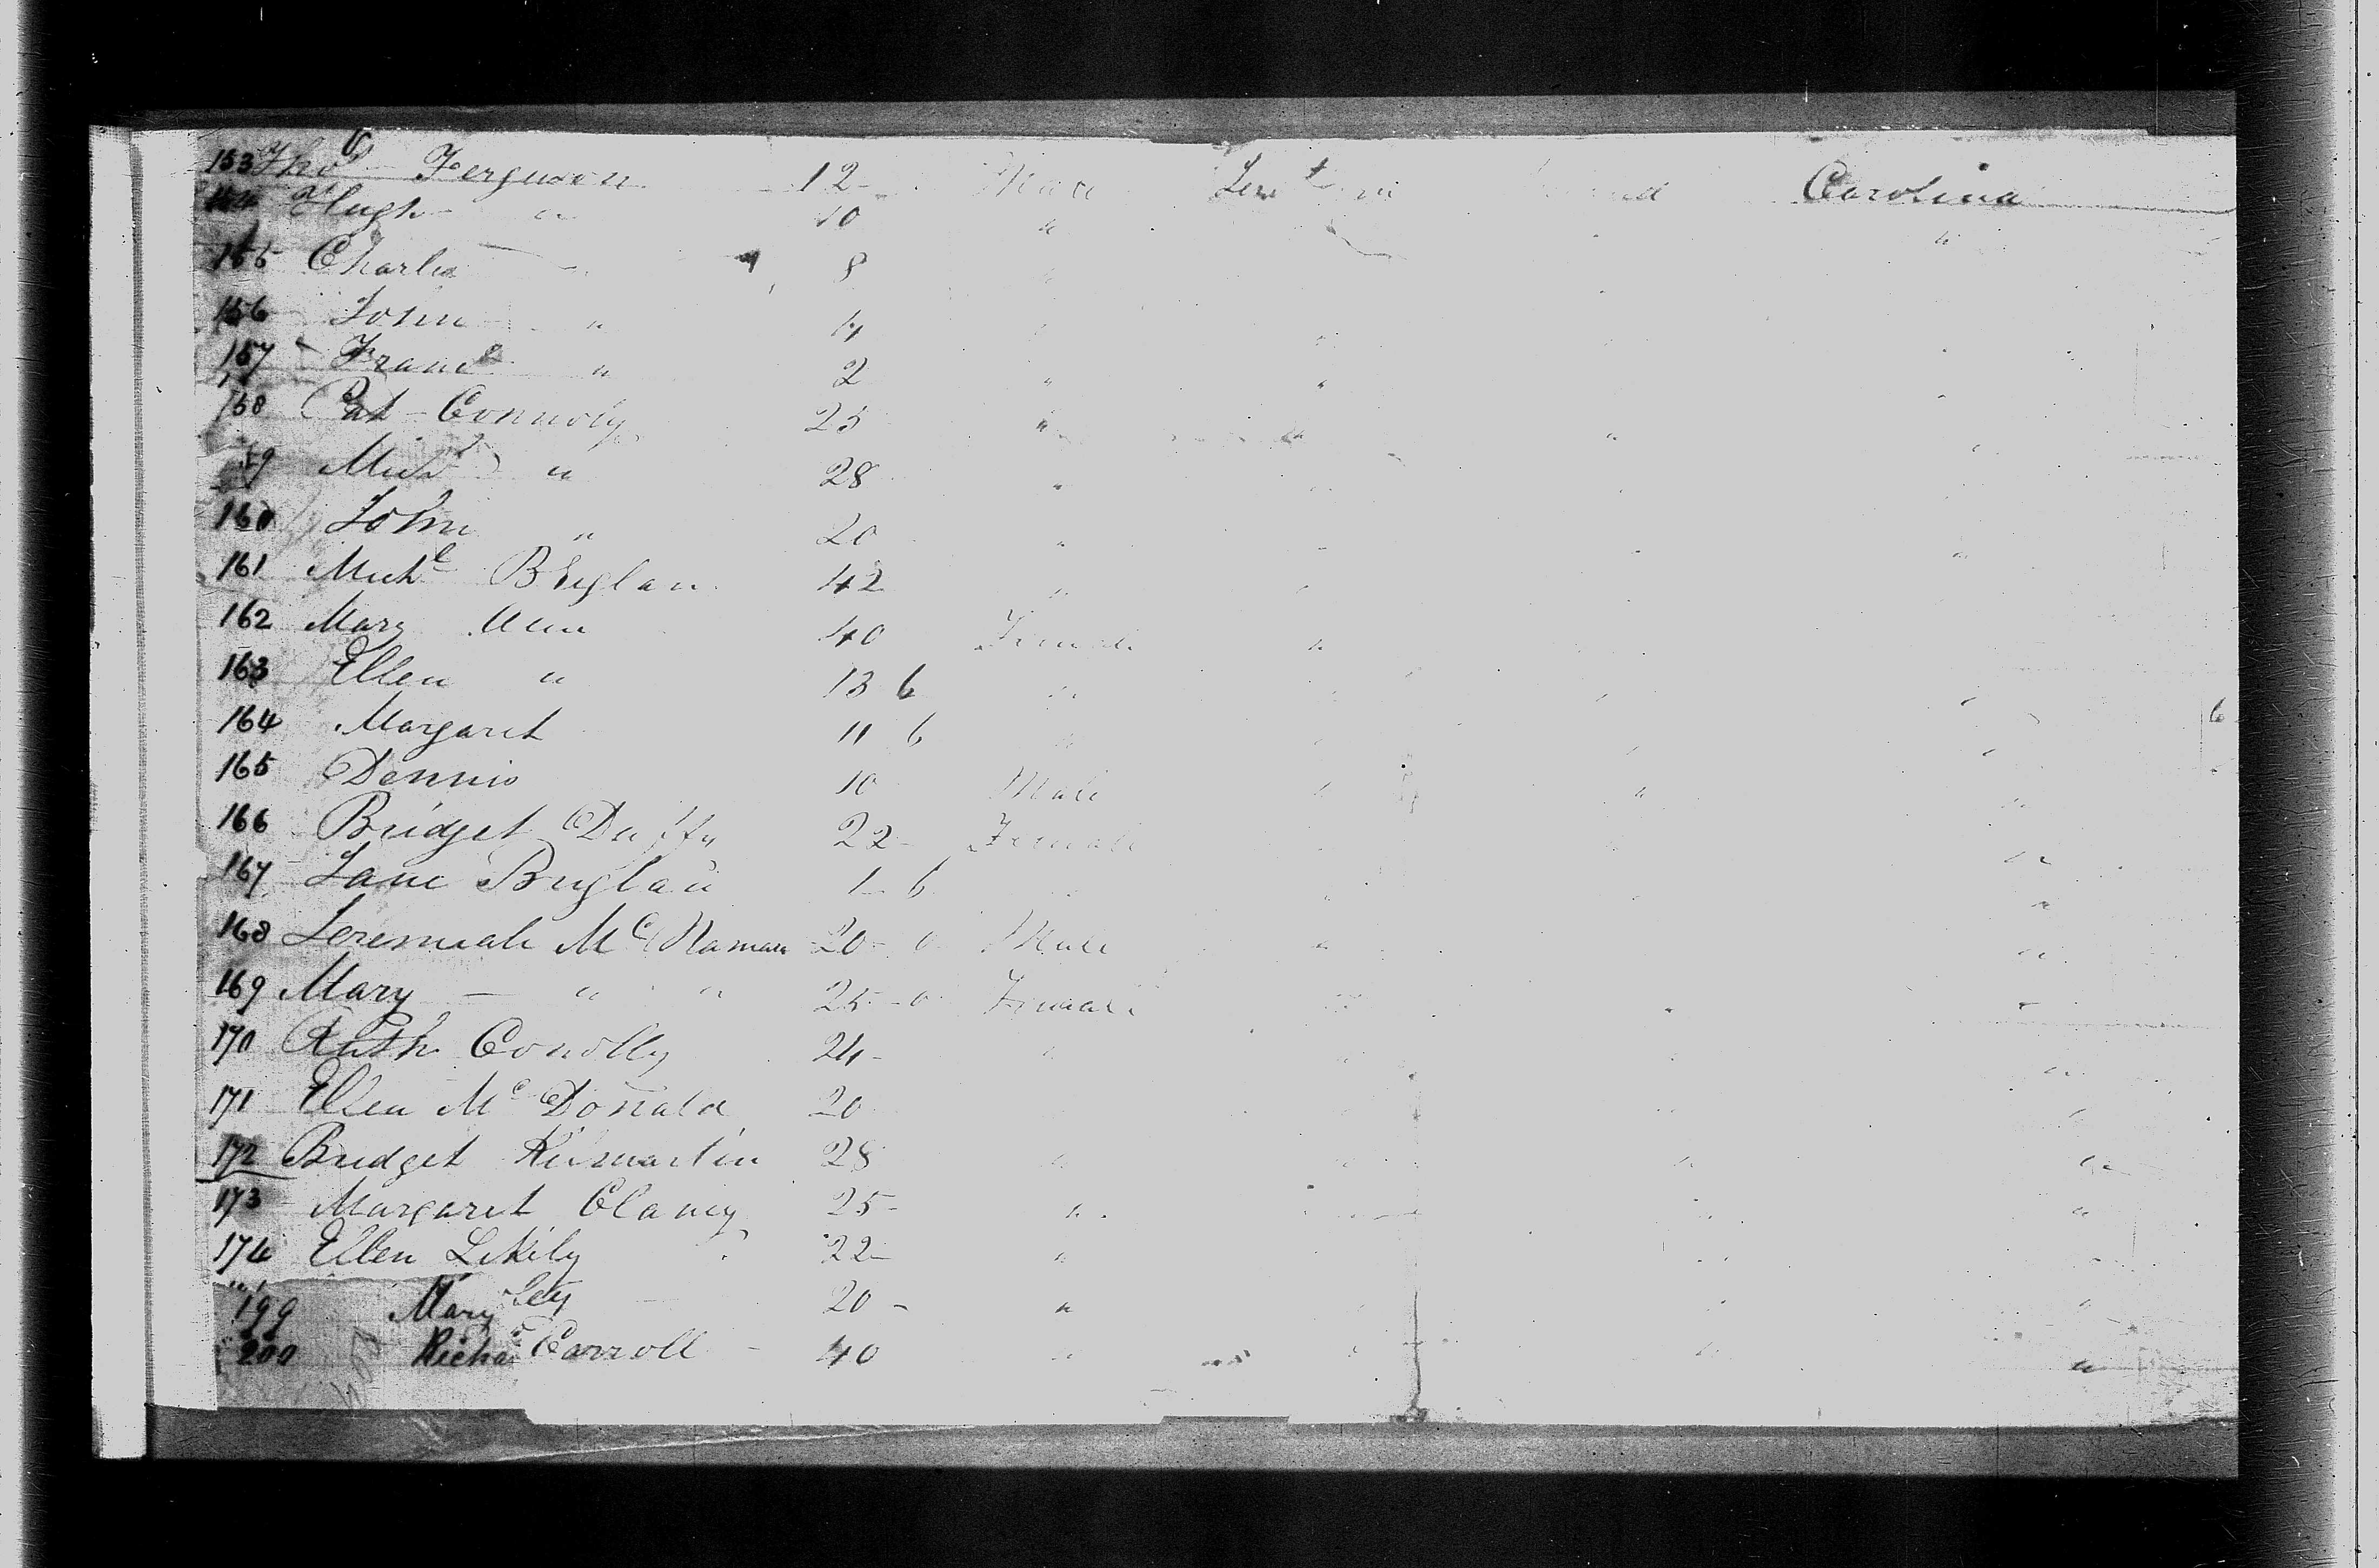 153 Thos Ferguson 12 Male Carolina
Hugh " 10 " "
155 Charles 8
156 John " 4
157 Franc " 2 " "
158 Pat Connoly 25 " " "
159 Michl " 28 "
160 John " 20 " "
161 Michl Buglan 42 "
162 Mary Ann 40 Female "
163 Ellen " 13 6 "
164 Margaret 11 6 " 6
165 Dennis 10 Male " " "
166 Bridget Duffy 22 Female "
167 Jane Buglan 1 6 "
168 Jeremiah McNamara 20 - 0 Male " "
169 Mary — " " 25 - 0 Female "
170 Ruth Conolly 24 - "
171 Ellen McDonald 20
172 Bridget Kilmartin 28 " "
173 Margaret Clancy 25 - " "
174 Ellen Likily 22 - "
199 Mary ley 20 - "
200 Richd Carroll - 40 " "